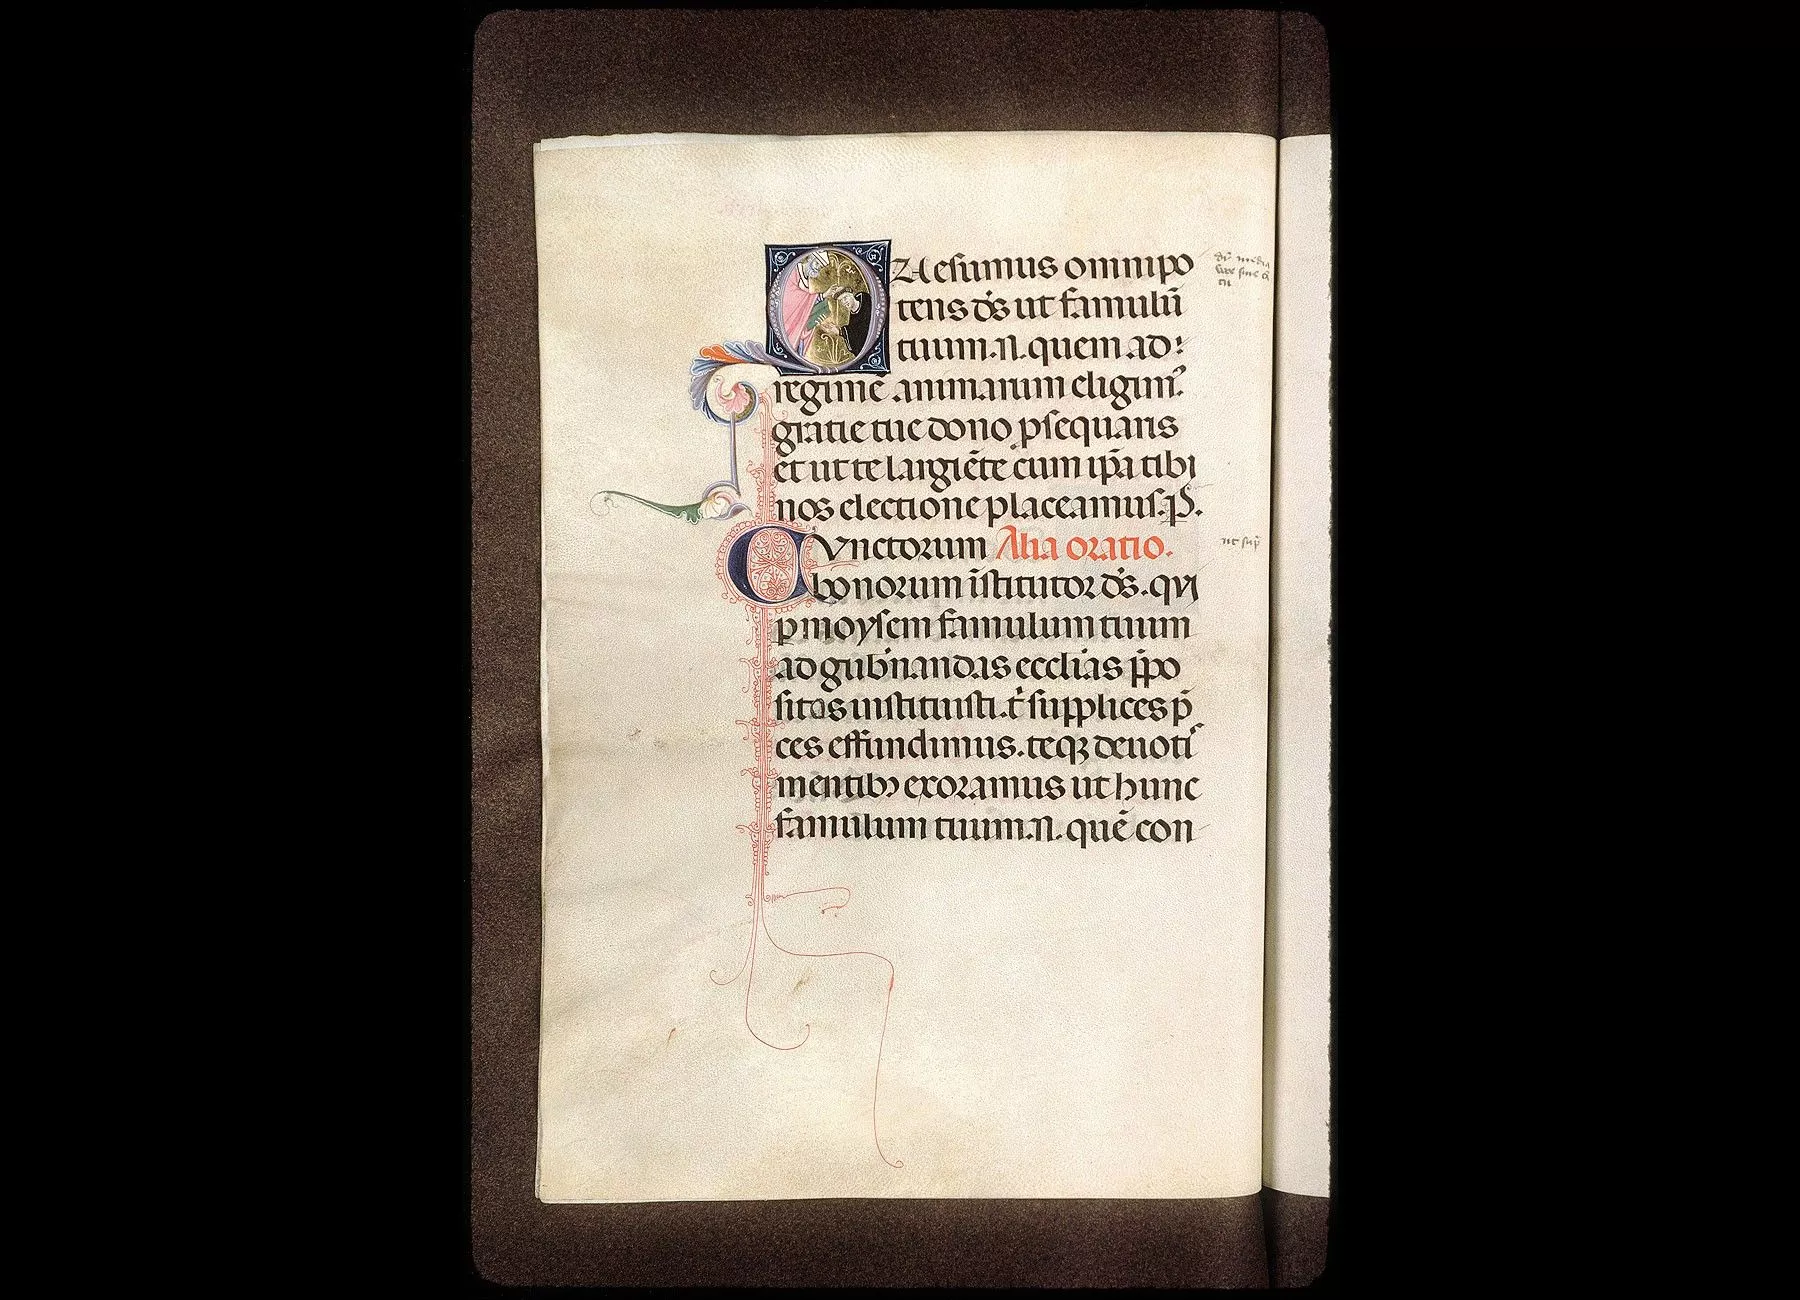 QVAesumus omnipo
tens ds̄ ut famulū
tuum .N. quem ad
regimē animarum eligim᷒
gratie tue dono psequaris
et ut te largiēte cum ip̄a tibi
nos electione placeamus. P.
CVnctorum Alia oratio.
bonorum īstitutor ds̄. qui
p moysem famulum tuum
ad gub̄nandas eccl̄ias p̄po
sitos instituisti. t̄ supplices p̄
ces effundimus. teqꝫ deuoti
mentibꝫ exoramus ut hunc
famulum tuum .N. quē con
ut sup̄